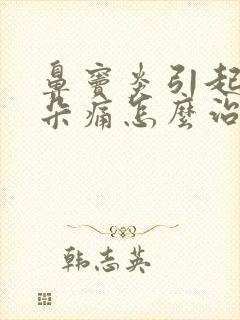 鼻窦炎引起
朵痛怎麼治
韩志英